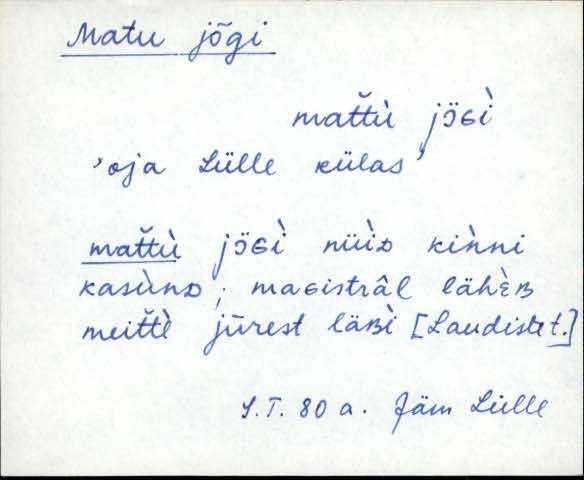 Matu jõgi
mat̆t̆ù jɔ̈ɢì
'oja Lülle külas'
mat̆t̆ù jɔ̈ɢì nüìᴅ kiǹni
kasùnᴅ; maɢistrâl lähèʙ
meit̆t̆è jūrest läʙì [Laudistet.]
S.T. 80 a. Jäm Lülle